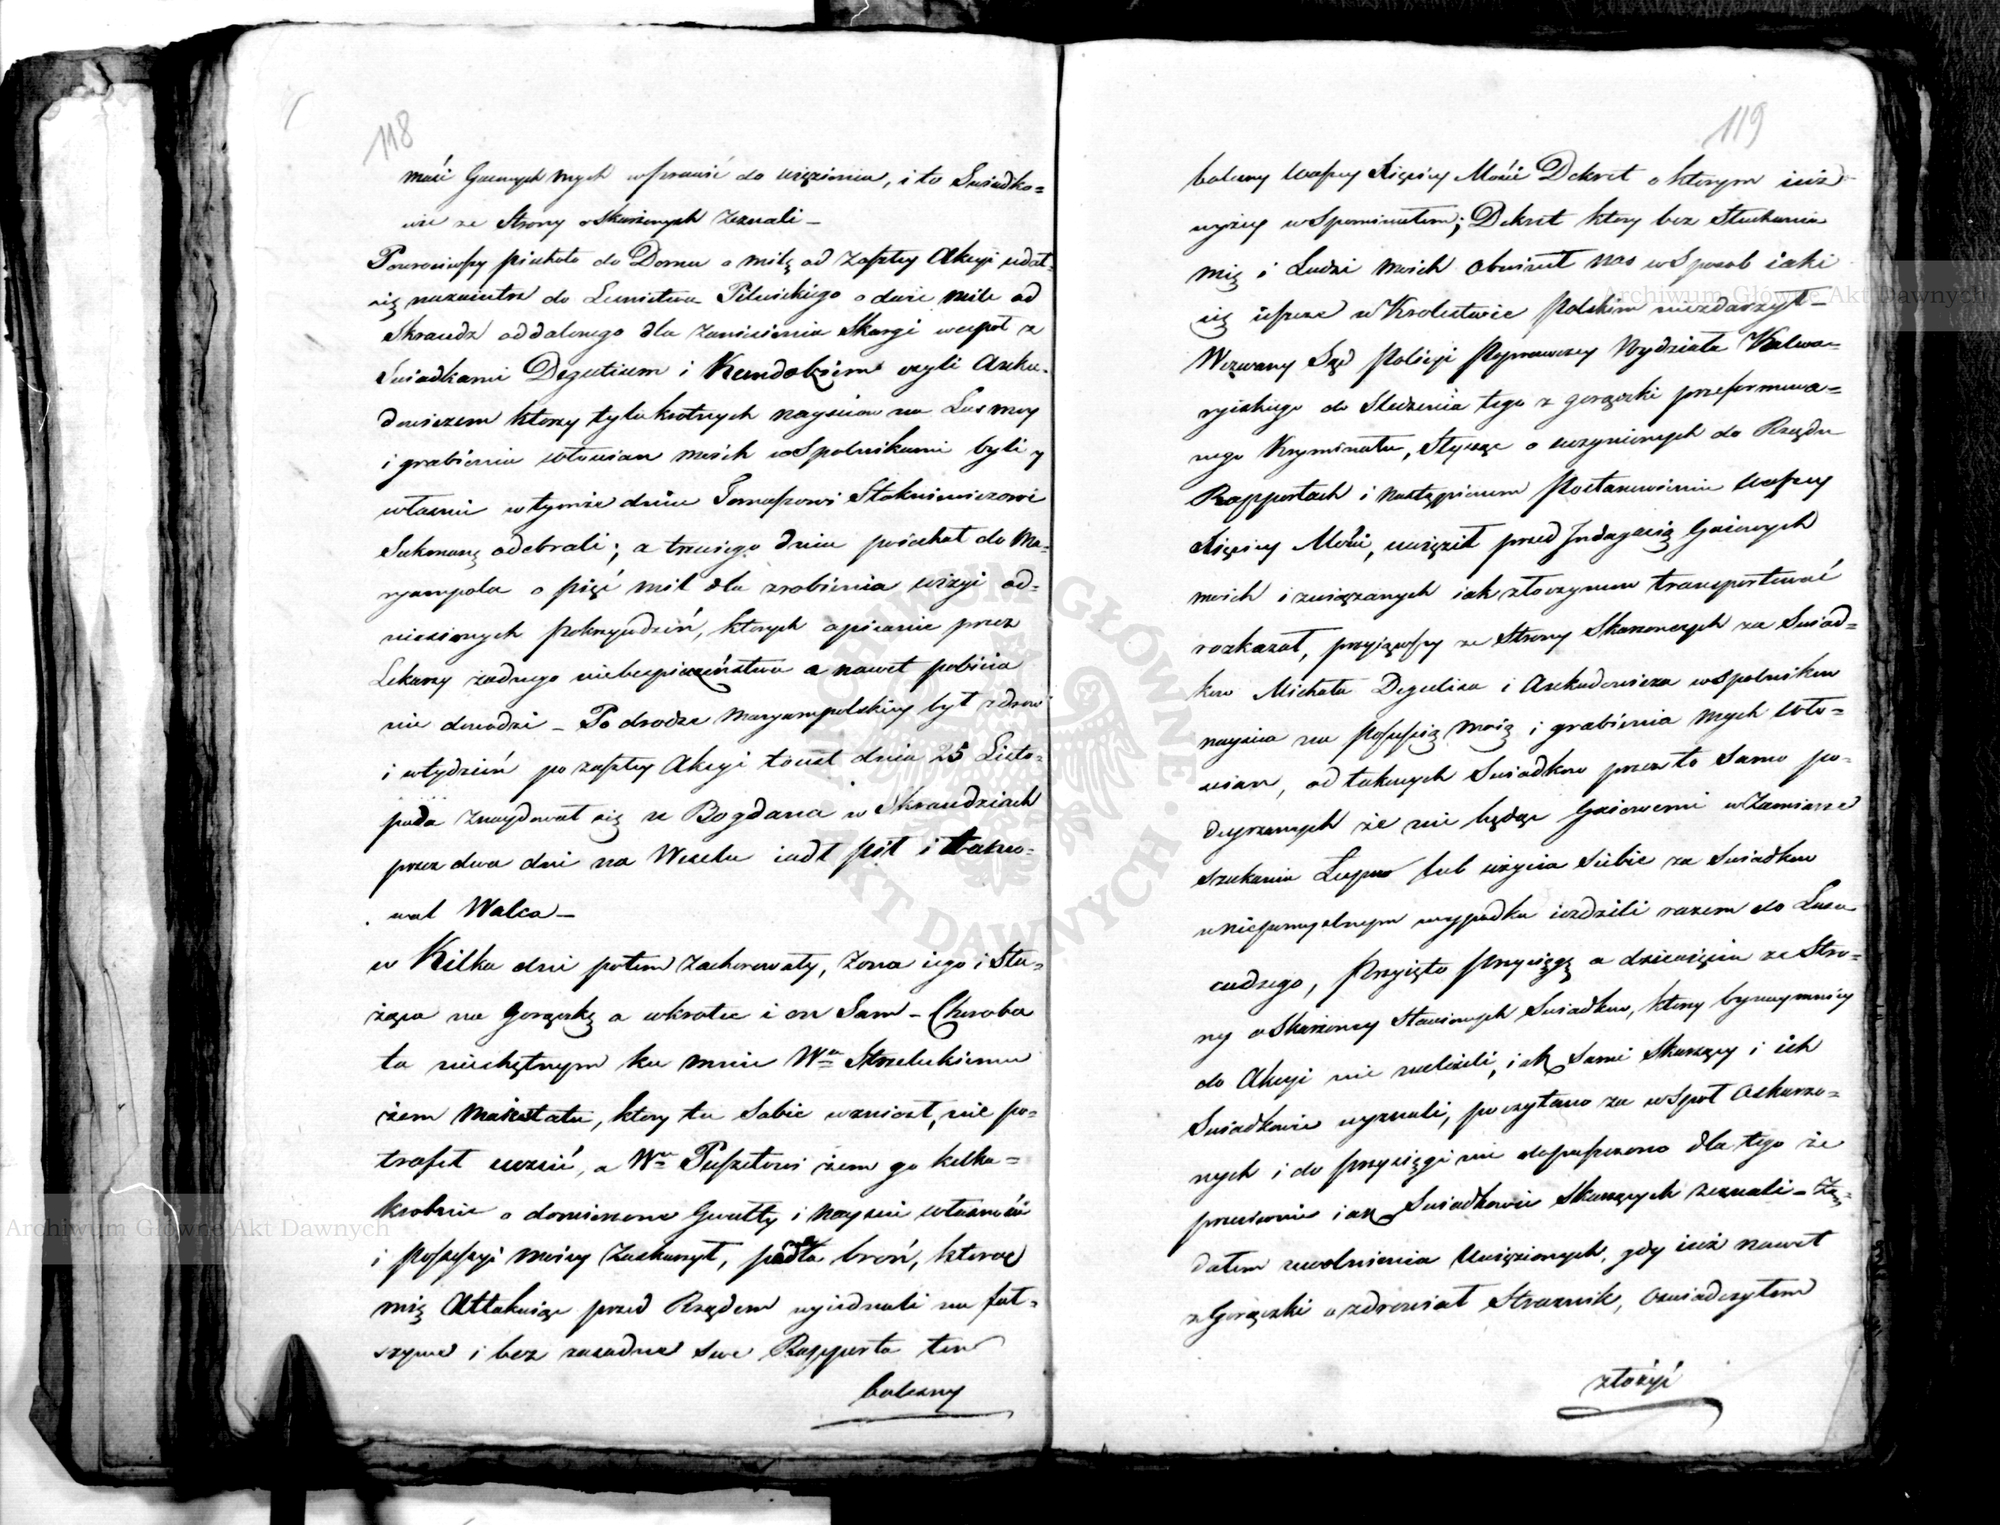 118
mość Gaiowych mych wprawić do więzienia, i to Swiadko=
wie ze Strony oskarżonych zeznali –
Powrociwszy piechoto do Domu o milę od zaszłey Akcyi udał
się nazaiutrz do Lesnictwa Pilwickiego o dwie mile od
Skraudz oddalonego dla zaniesienia Skargi wespoł z
Swiadkami Degutisem i Kundobsiem czyli Arku=
dowiczem ktorzy tylokrotnych nayściow na Las moy
i grabienia włościan moich wspolnikami byli y
własnie w tymże dniu Tomaszowi Stokuniewiczowi
Sukmanę odebrali; a trzeciego dnia poiechał do Ma=
ryampola o pięć mil dla zrobienia wizyi od=
niesionych pokrzywdzeń, ktorych opisanie przez
Lekarzy żadnego niebespieczeństwa a nawet pobicia
nie dowodzi – Po drodze Maryampolskiey był zdrow
i w tydzień po zaszłey Akcyi to iest dnia 25 Listo=
pada znaydował się u Bogdana w Skraudziach
przez dwa dni na Weselu iadł pił i tańco=
wał Walca –
w Kilka dni potem zachorowały, żona iego i Słu=
żąca na gorączkę a wkrotce i on Sam – Choroba
ta niechętnym ku mnie Wmu Strzeleckiemu
żem maiestatu, ktory tu Sobie wzniosł, nie po=
trafił uczcić, a Wmu Puszetowi żem go kilka=
krotnie o doniesione Gwałty i nayście własności
i Possessyi moiey zaskarżył, podała broń, ktorą
mię Attakuiąc przed Rządem wyiednali na fał=
szywe i bez zasadne swe Rapporta ten
bolesny
119
bolesny Waszey Xiążęcey Mości Dekret o ktorym iuż
wyżey wspomniałem; Dekret ktory bez słuchania
mię i Ludzi moich obwinił nas w Sposob iaki
się ieszcze w Krolestwie Polskim niezdarzył –
Wezwany Sąd Policyi Poprawczey Wydziału Kalwa=
ryiskiego do Sledzenia tego z gorączki przeformowa=
nego Kryminału, Słysząc o uczynionych do Rządu
Rapportach i nastąpionem Postanowieniu Waszey
Xiążęcey Mości, uwięził przed Indagacią Gaiowych
moich i związanych iak złoczyncow transportować
rozkazał, przyiąwszy ze Strony Skarżących za Swiad=
kow Michała Degutisa i Arkudowicza wspolnikow
nayścia na Possessią moią i grabienia mych wło=
ścian, od takowych Swiadkow przez to samo po=
deyrzanych że nie będąc Gaiowemi w Zamiarze
szukania Łupu lub użycia siebie za swiadkow
w niepomyslnym wypadku iezdzili razem do Lasu
cudzego, Przyięto przysięgę a dziesięciu ze Stro=
ny oskarżoney Stawionych Swiadkow, ktorzy bynaymniey
do Akcyi nie należeli, iak Sami Skarżący i ich
Swiadkowie wyznali, poczytano za wspoł Oskarżo=
nych i do przysięgi nie dopuszczono dla tego że
przeciwnie iak Swiadkowie Skarżących zeznali – Żą=
dałem uwolnienia Uwięzionych, gdy iuż nawet
z Gorączki ozdrowiał Strażnik, oswiadczyłem
złożyć
Archiwum Główne Akt Dawnych
Archiwum Główne Akt Dawnych
ARCHIWUM GŁÓWNE AKT DAWNYCH